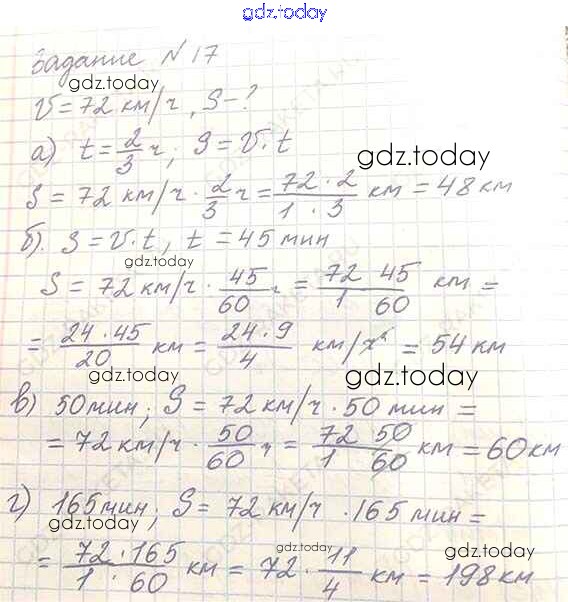 gdz.today
Задание №17
gdz.today
V = 72 км/ч, S - ?
а) t = 2/3 ч; S = V·t
gdz.today
S = 72 км/ч · 2/3 ч = 72·2/1·3 км = 48 км
б). S = V·t, t = 45 мин
gdz.today
S = 72 км/ч · 45/60 ч = 72 45/1 60 км =
= 24·45/20 км = 24·9/4 км/ч = 54 км
gdz.today
gdz.today
в) 50 мин; S = 72 км/ч · 50 мин =
= 72 км/ч · 50/60 ч = 72 50/1 60 км = 60 км
gdz.today
г) 165 мин; S = 72 км/ч · 165 мин =
gdz.today
gdz.today
= 72·165/1·60 км = 72· 11/4 км = 198 км
gdz.today
gdz.today